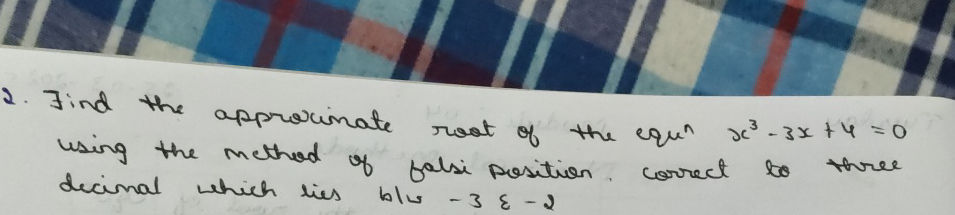 2. Find the approximate root of the equn x³ - 3x + 4 = 0
using the method of falsi position. correct to three
decimal which lies b/w -3 & -2